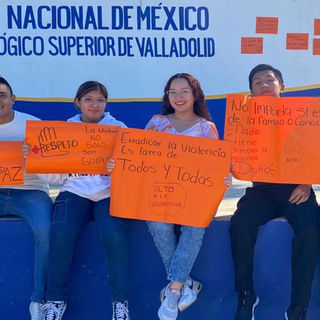 NACIONAL DE MÉXICO
ÓGICO SUPERIOR DE VALLADOLID
PAZ
RESPETO
La Violencia
No
SOLO
SON
GOLPES
Erradicar la Violencia
Es tarea de
Todos y Todas
ALTO
A LA
VIOLENCIA
No Importa si es
de la familia o Conoc
Nadie
tiene
derecho a
hacerte
Daño
ALTO